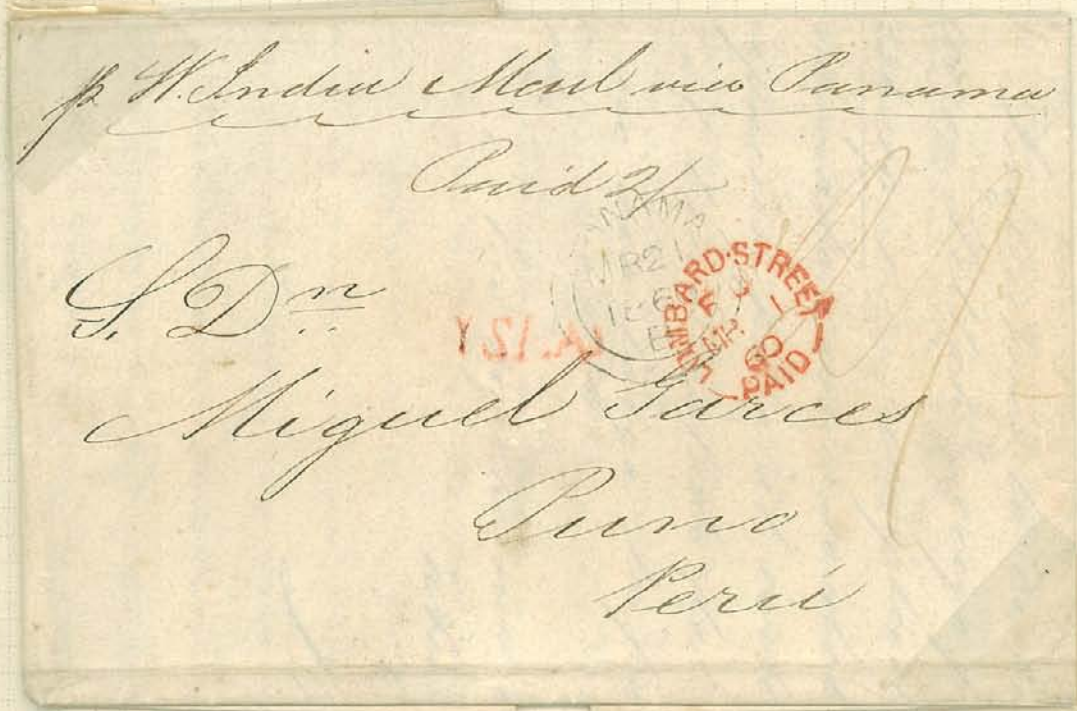 p W. India Mail via Panama
Paid 2/
PANAMA
MR 21
1860
LOMBARD·STREET
F 1
MR
60
PAID
S. Dn
Miguel Garces
Puno
Perú